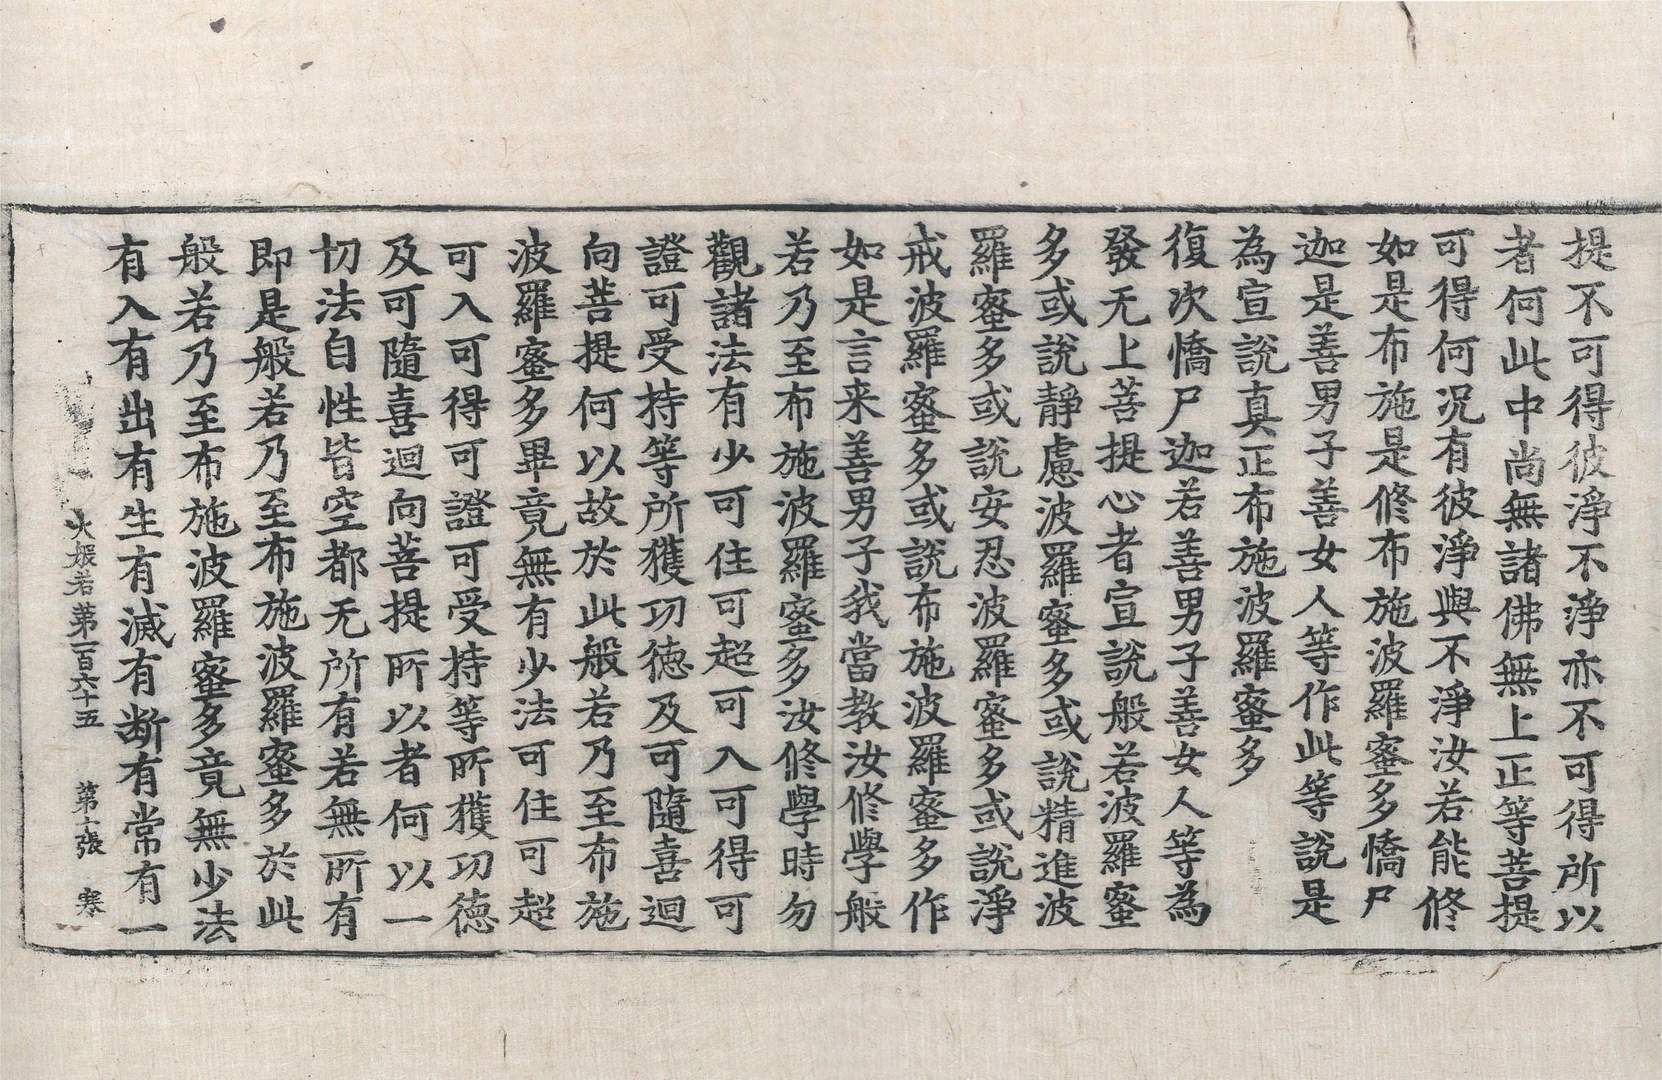 提不可得彼淨不淨亦不可得所以
者何此中尚無諸佛無上正等菩提
可得何況有彼淨與不淨汝若能修
如是布施是修布施波羅蜜多憍尸
迦是善男子善女人等作此等說是
為宣說真正布施波羅蜜多
復次憍尸迦若善男子善女人等為
發无上菩提心者宣說般若波羅蜜
多或說靜慮波羅蜜多或說精進波
羅蜜多或說安忍波羅蜜多或說淨
戒波羅蜜多或說布施波羅蜜多作
如是言来善男子我當教汝修學般
若乃至布施波羅蜜多汝修學時勿
觀諸法有少可住可超可入可得可
證可受持等所獲功德及可隨喜迴
向菩提何以故於此般若乃至布施
波羅蜜多畢竟無有少法可住可超
可入可得可證可受持等所獲功德
及可隨喜迴向菩提所以者何以一
切法自性皆空都无所有若無所有
即是般若乃至布施波羅蜜多於此
般若乃至布施波羅蜜多竟無少法
有入有出有生有滅有断有常有一
大般若第一百六十五 第十張 寒